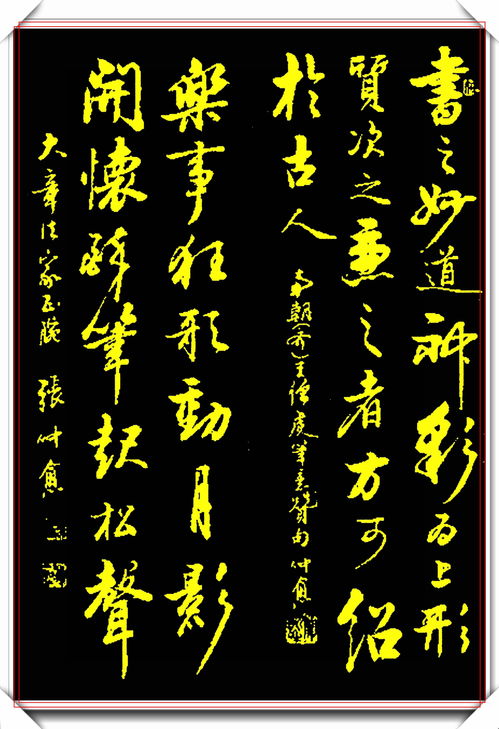 書之妙道神彩为上形
質次之兼之者方可紹
於古人
南朝(齐)王僧虔筆意贊句 仲愈
樂事狂形動月影
開懷醉筆起松聲
大章法家正腕 張仲愈